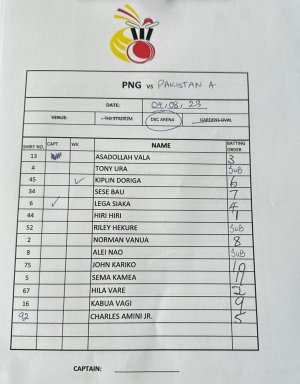 PNG vs PAKISTAN A
DATE: 04, 08, 23
VENUE: STADIUM DSC ARENA GARDENS OVAL
SHIRT NO. CAPT WK NAME BATTING ORDER
13 ASADOLLAH VALA 3
4 TONY URA SUB
45 ✓ KIPLIN DORIGA 6
34 SESE BAU 7
6 ✓ LEGA SIAKA 4
44 HIRI HIRI 1
52 RILEY HEKURE SUB
2 NORMAN VANUA 8
8 ALEI NAO SUB
75 JOHN KARIKO 10
5 SEMA KAMEA 11
67 HILA VARE 2
16 KABUA VAGI 9
92 CHARLES AMINI JR. 5
CAPTAIN: